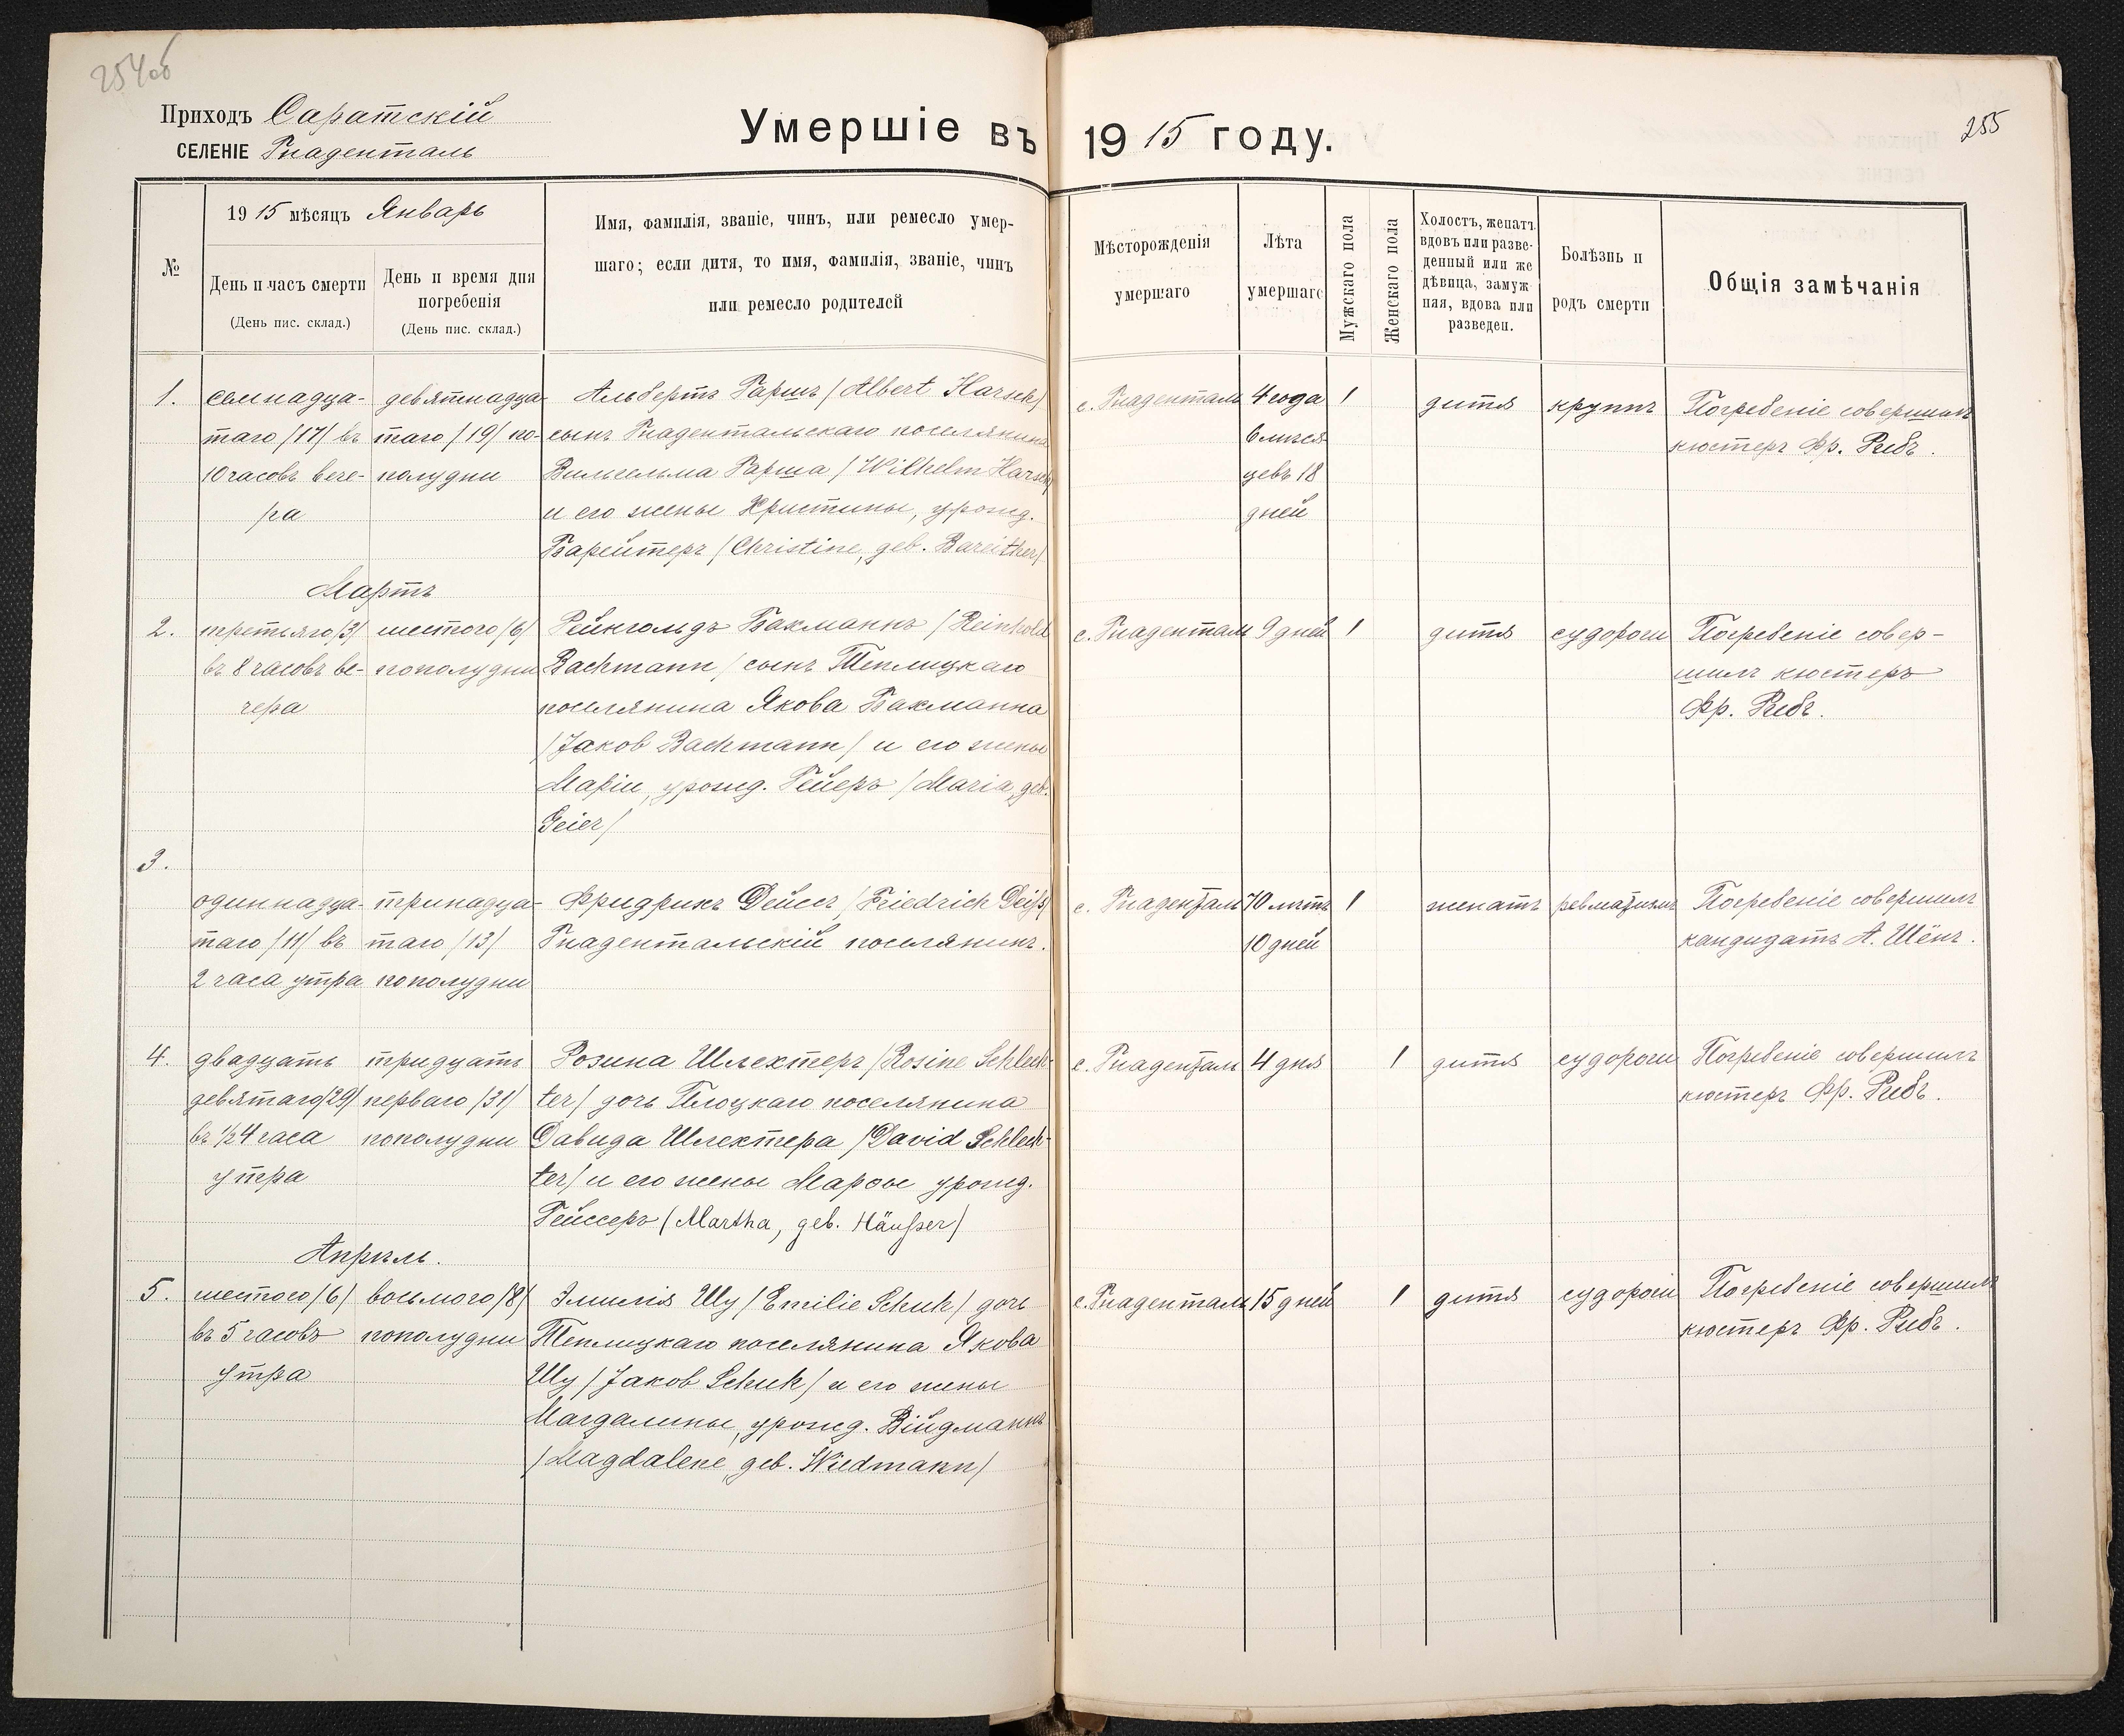 254об
Приходъ Саратскій
СЕЛЕНІЕ Гнаденталь
Умершіе въ 1915 году.
255
№
1915 мѣсяцъ Январь
День и часъ смерти
(День пис. склад.)
День и время дня
погребенія
(День пис. склад.)
Имя, фамилія, званіе, чинъ, или ремесло умер-
шаго; если дитя, то имя, фамилія, званіе, чинъ
или ремесло родителей
Мѣсторожденія
умершаго
Лѣта
умершаго
Мужскаго пола
Женскаго пола
Холостъ, женатъ
вдовъ или разве-
денный или же
дѣвица, замуж
ная, вдова или
разведен.
Болѣзнь и
родъ смерти
Общія замѣчанія
1.
семнадца-
таго /17/ въ
10 часовъ вече-
ра
девятнадца-
таго /19/ по-
полудни
Альбертъ Гаршъ /Albert Harsch/
сынъ Гнадентальскаго поселянина
Вильгельма Гарша /Wilhelm Harsch/
и его жены Христины, урожд.
Барейтеръ /Christine, geb. Bareither/
с. Гнаденталь
4 года
6 мѣся
цевъ 18
дней
1
дитя
круппъ
Погребеніе совершилъ
кюстеръ Фр. Рибъ.
Мартъ
2.
третьяго /3/
въ 8 часовъ ве-
чера
шестого /6/
пополудни
Рейнгольдъ Бахманнъ /Reinhold
Bachmann/ сынъ Теплицкаго
поселянина Якова Бахманна
/Jакоб Bachmann/ и его жены
Маріи, урожд. Гейеръ /Maria, geb.
Geier/
с. Гнаденталь
9 дней
1
дитя
судороги
Погребеніе совер-
шилъ кюстеръ
Фр. Рибъ.
3.
одиннадца-
таго /11/ въ
2 часа утра
тринадца-
таго /13/
пополудни
Фридрихъ Дейссъ /Friedrich Deiß/
Гнадентальскій поселянинъ.
с. Гнаденталь
70 лѣтъ
10 дней
1
женатъ
ревматизмъ
Погребеніе совершилъ
кандидатъ А. Шёнъ.
4.
двадцать
девятаго /29/
въ ½ 4 часа
утра
тридцать
перваго /31/
пополудни
Розина Шлехтеръ /Rosine Schlech-
ter/ дочь Плоцкаго поселянина
Давида Шлехтера /David Schlech-
ter/ и его жены Марѳы урожд.
Гейссеръ (Martha, geb. Häußer)
с. Гнаденталь
4 дня
1
дитя
судороги
Погребеніе совершилъ
кюстеръ Фр. Рибъ.
Апрѣль.
5.
шестого /6/
въ 5 часовъ
утра
восьмого /8/
пополудни
Эмилія Шу /Emilie Schuh/ дочь
Теплицкаго поселянина Якова
Шу /Jакоб Schuh/ и его жены
Магдалины, урожд. Війдманнъ
/Magdalene, geb. Wiedmann/
с. Гнаденталь
15 дней
1
дитя
судороги
Погребеніе совершилъ
кюстеръ Фр. Рибъ.